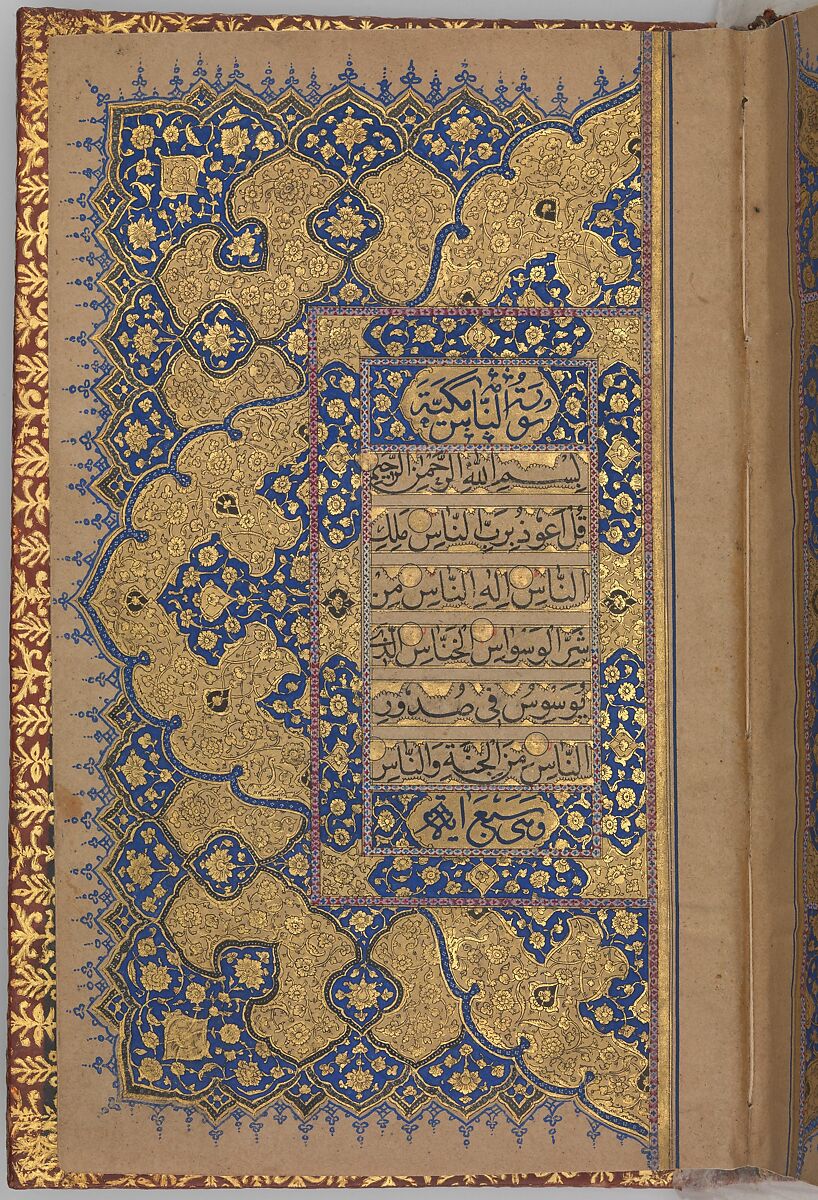 سورة الناس مكية
بسم الله الرحمن الرحيم
قُل عَوذُ بِرَبِّ النَّاسِ مَلِكِ
النَّاسِ اِلٰهِ النَّاسِ مِن
شَرِّ الوَسوَاسِ الخَنَّاسِ الَّذ
يُوَسوِسُ فِي صُدُورِ
النَّاسِ مِنَ الجِنَّةِ وَالنَّاسِ
وهي سبع اية